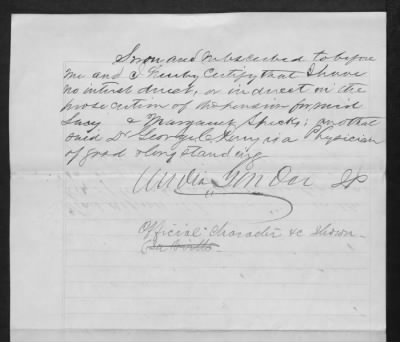 Sworn and subscribed to before
me and I hereby certify that I have
no interest direct, or indirect in the
prosecution of the pension for said
Lucy & Margaret Speeks; and that
said Dr George C. is a Physician
of good & long standing
Official Character &c Shown